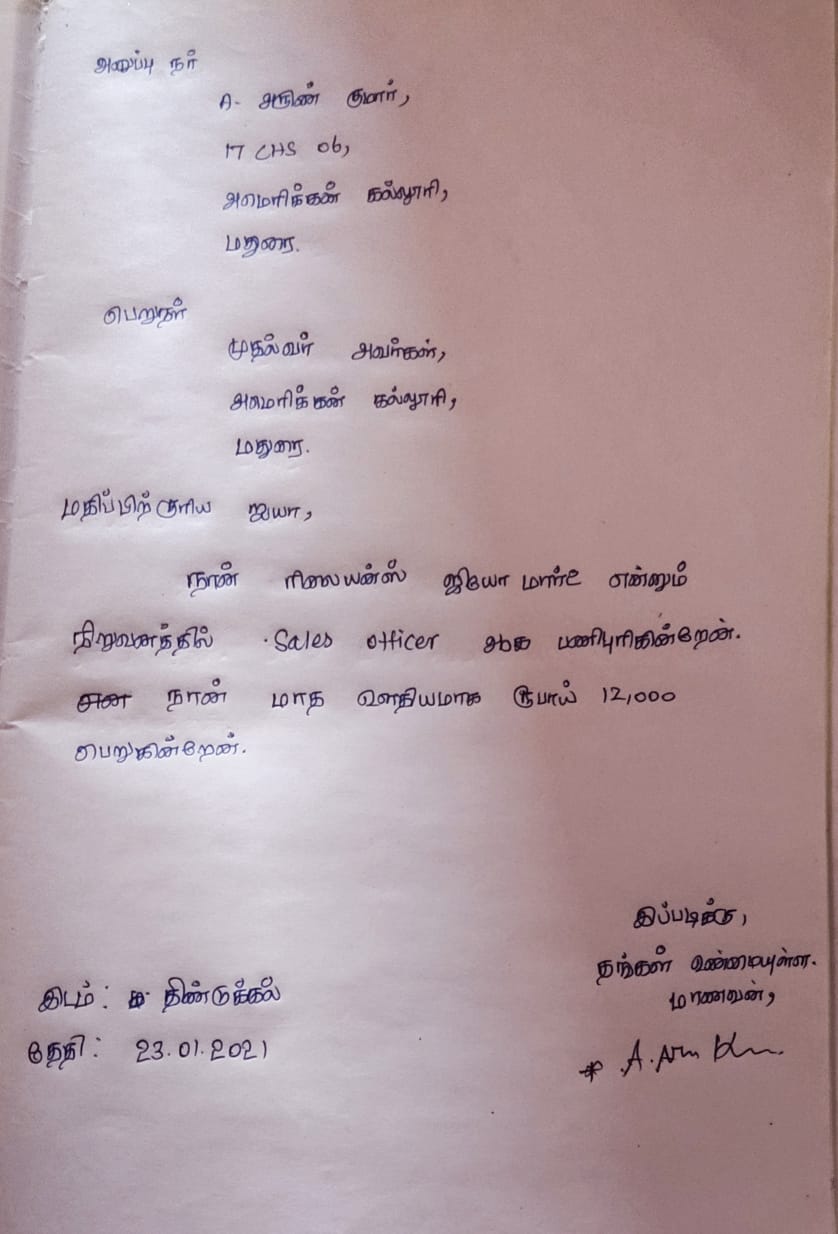 அனுப்புநர்
A. அருண் குமார்,
17 CHS 06,
அமெரிக்கன் கல்லூரி,
மதுரை.
பெறுநர்
முதல்வர் அவர்கள்,
அமெரிக்கன் கல்லூரி,
மதுரை.
மதிப்பிற்குரிய ஐயா,
நான் ரிலையன்ஸ் ஜியோ மார்ட் என்னும்
நிறுவனத்தில் Sales officer ஆக பணிபுரிகின்றேன்.
நான் மாத ஊதியமாக ரூபாய் 12,000
பெறுகின்றேன்.
இப்படிக்கு,
தங்கள் உண்மையுள்ள.
மாணவன்,
இடம்: திண்டுக்கல்
தேதி: 23.01.2021
A. Arun